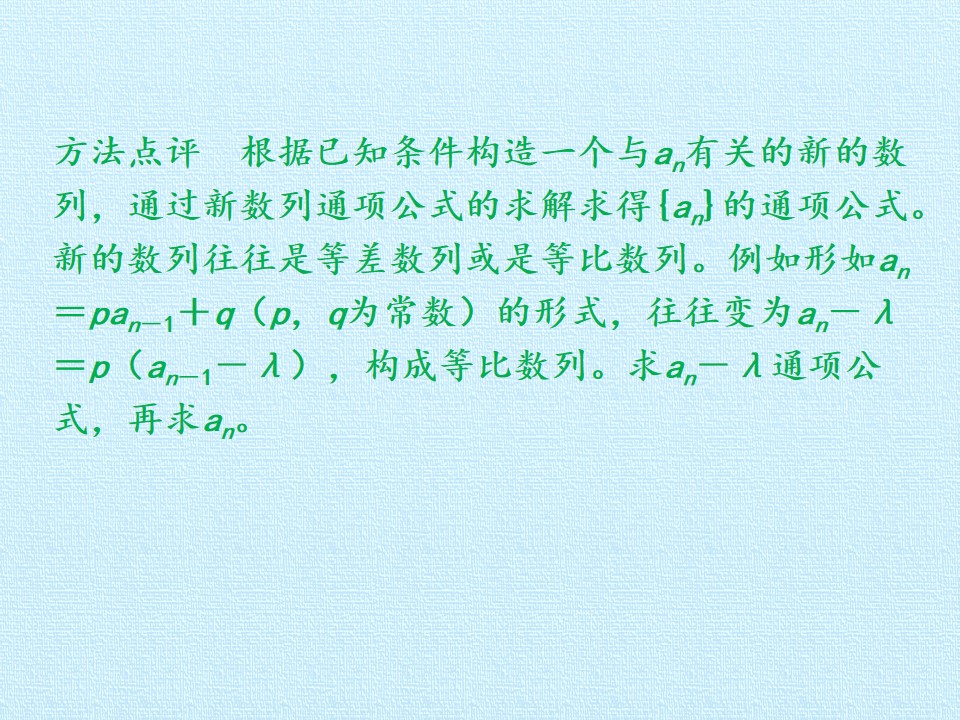 方法点评　根据已知条件构造一个与aₙ有关的新的数
列，通过新数列通项公式的求解求得{aₙ}的通项公式。
新的数列往往是等差数列或是等比数列。例如形如aₙ
＝paₙ₋₁＋q（p，q为常数）的形式，往往变为aₙ－λ
＝p（aₙ₋₁－λ），构成等比数列。求aₙ－λ通项公
式，再求aₙ。